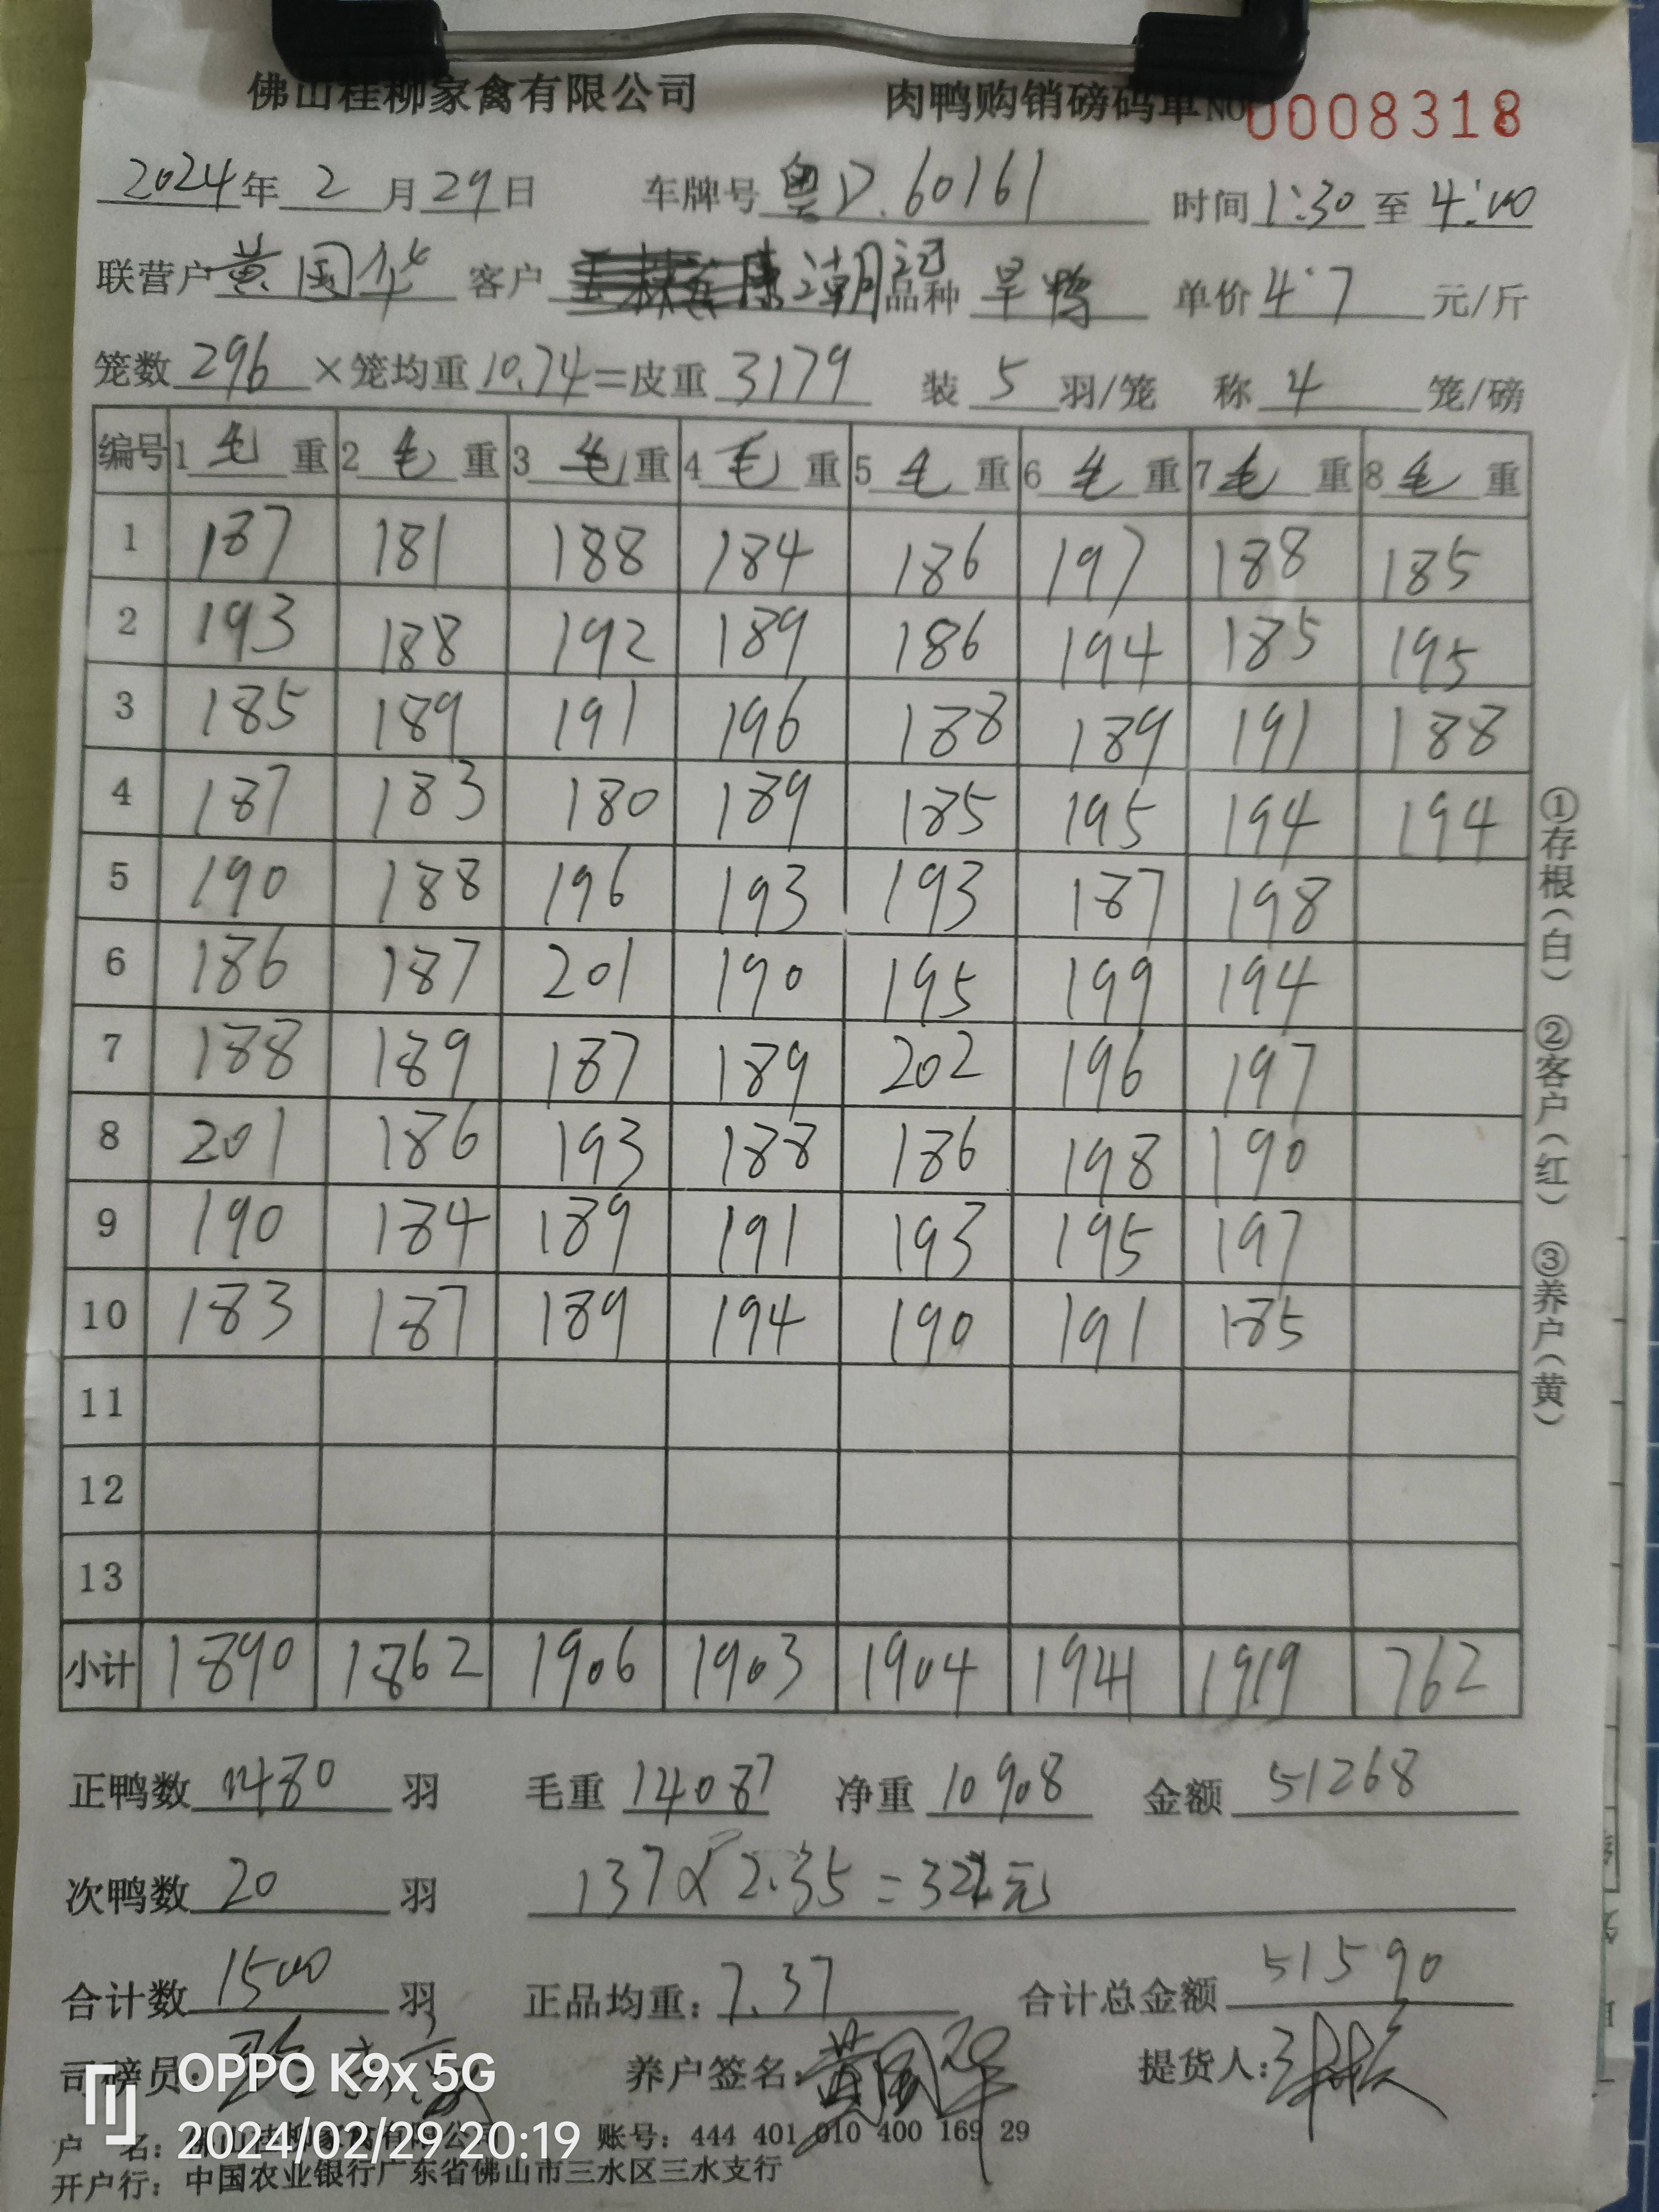 佛山桂柳家禽有限公司 肉鸭购销磅码单 NO 0008318
2024年 2 月 29 日 车牌号 粤D.60161 时间 1:30 至 4:00
联营户 黄国华 客户 潮记 品种 旱鸭 单价 4.7 元/斤
笼数 296 ×笼均重 10.74 =皮重 3179 装 5 羽/笼 称 4 笼/磅
编号 1 毛 重 2 毛 重 3 毛 重 4 毛 重 5 毛 重 6 毛 重 7 毛 重 8 毛 重
1 187 181 188 184 186 197 188 185
2 193 188 192 189 186 194 185 195
3 185 189 191 196 188 189 191 188
4 187 183 180 189 185 195 194 194
5 190 188 196 193 193 187 198
6 186 187 201 190 195 199 194
7 188 189 187 189 202 196 197
8 201 186 193 188 186 198 190
9 190 184 189 191 193 195 197
10 183 187 189 194 190 191 185
11
12
13
小计 1890 1862 1906 1903 1904 1941 1919 762
①存根(白) ②客户(红) ③养户(黄)
正鸭数 1480 羽 毛重 14087 净重 10908 金额 51268
次鸭数 20 羽 137×2.35=322元
合计数 1500 羽 正品均重: 7.37 合计总金额 51590
司磅员: 养户签名: 黄国华 提货人:
OPPO K9x 5G
2024/02/29 20:19
户 名: 佛山桂柳家禽有限公司 账号: 444 401 010 400 169 29
开户行: 中国农业银行广东省佛山市三水区三水支行